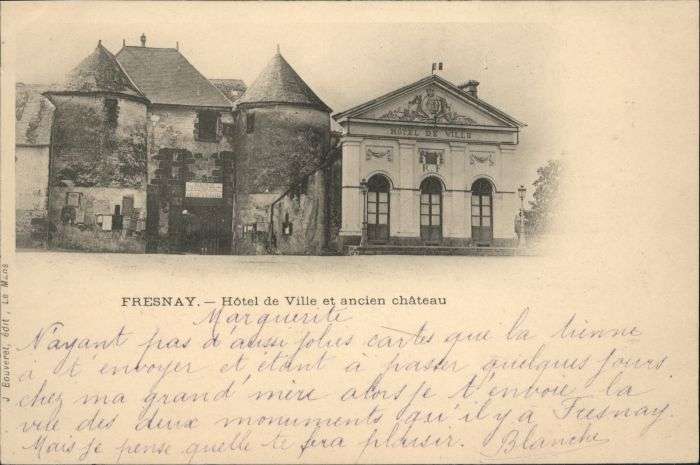 HÔTEL DE VILLE
R F
FRESNAY. — Hôtel de Ville et ancien château
J. Bouveret, édit, Le Mans
Marguerite
N'ayant pas d'aussi jolies cartes que la tienne
à t'envoyer et étant à passer quelques jours
chez ma grand' mère alors je t'envoie la
vue des deux monuments qu'il y a Fresnay.
Mais je pense quelle te fra plaisir. Blanche